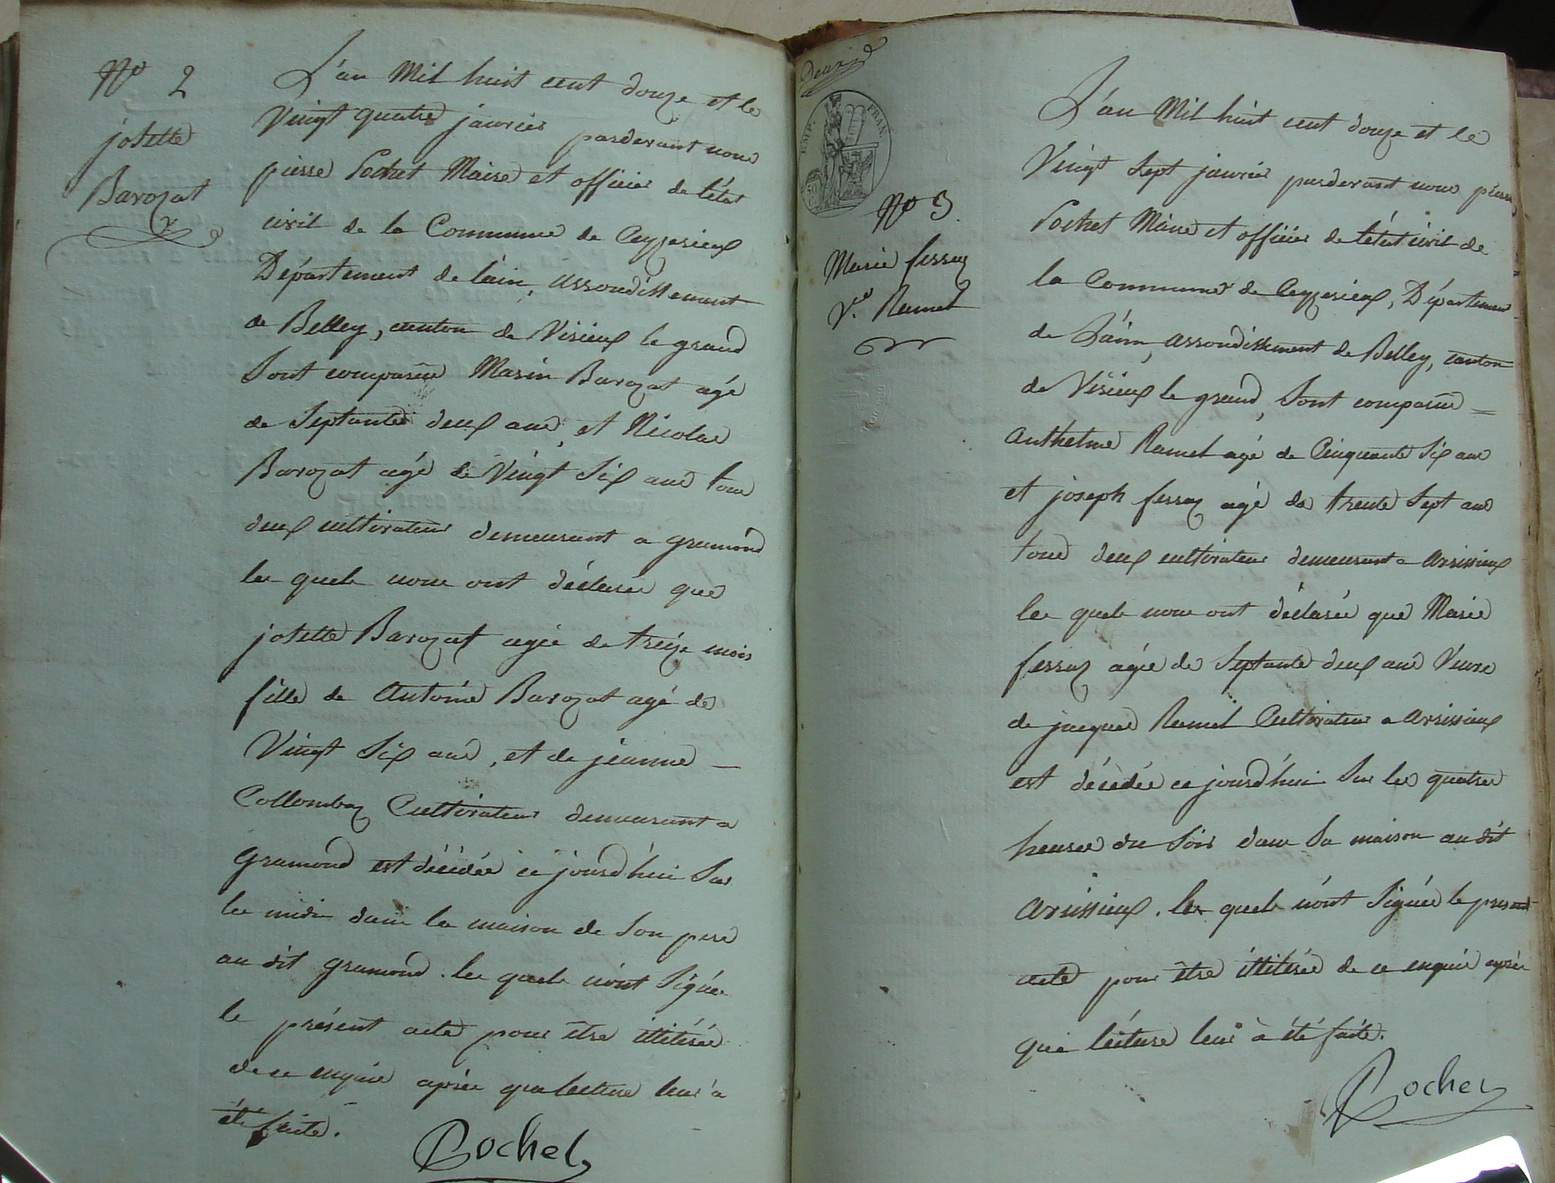 No 2
josette
Barozat
L'an Mil huit cent douze et le
Vingt quatre janvier pardevant nous
pierre Pochet Maire et officier de l'état
civil de la Commune de Ceyzerieux
Département de l'ain, arrondissement
de Belley, canton de Virieux le grand
Sont comparus Marin Barozat agé
de Septante deux ans, et Nicolas
Barozat agé de Vingt Six ans tous
deux cultivateurs demeurant a gramond
les quels nous ont déclarés que
josette Barozat agée de treize mois
fille de Antoine Barozat agé de
Vingt Six ans, et de jeanne —
Collombaz Cultivateurs demeurant a
gramond est décédée ce jourd'hui Sur
les midi dans la maison de Son pere
au dit gramond. les quels n'ont Signés
le présent acte pour être illitérés
de ce enquis après que lecture leur a
été faite.
Pochet
deux
EMP. FRAN.
No 3.
Marie ferraz
Ve. Ramel
L'an Mil huit cent douze et le
Vingt Sept janvier pardevant nous pierre
Pochet Maire et officier de l'état civil de
la Commune de Ceyzerieux, Département
de L'ain, arrondissement de Belley, canton
de Virieux le grand, Sont comparus =
anthelme Ramel agé de Cinquante Six ans
et joseph ferraz agé de trente Sept ans
tous deux cultivateurs demeurant a avrissieux
les quels nous ont déclarés que Marie
ferraz agée de Septante deux ans Veuve
de jacques Ramel Cultivateur a avrissieux
est décédée ce jourd'hui Sur les quatres
heures du Soir dans Sa maison au dit
avrissieux. les quels n'ont Signés le present
acte pour être illitérés de ce enquis après
que lécture leur à été faite.
Pochet